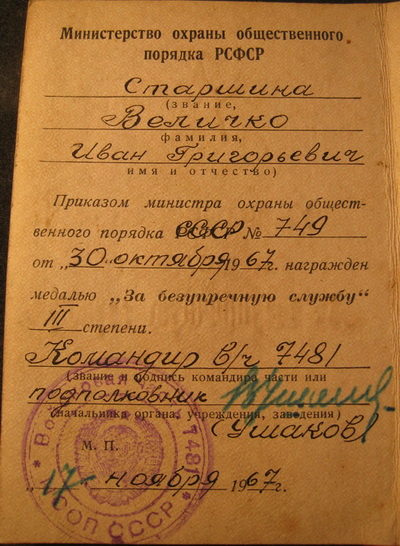 Министерство охраны общественного
порядка РСФСР
Старшина
(звание,
Величко
фамилия,
Иван Григорьевич
имя и отчество)
Приказом министра охраны общест-
венного порядка СССР № 749
от „30" октября 1967г. награжден
медалью „За безупречную службу"
III степени.
Командир в/ч 7481
(звание и подпись командира части или
подполковник
начальника органа, учреждения, заведения)
(Ушаков)
М. П.
„17" ноября 1967г.
7481 * МООП СССР *